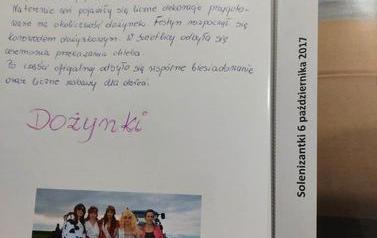 Na terenie wsi pojawiły się liczne dekoracje przygoto-
wane na okoliczność dożynek. Festyn rozpoczął się
korowodem dożynkowym. W świetlicy odbyła się
ceremonia przekazania chleba.
Po części oficjalnej odbyło się wspólne biesiadowanie
oraz liczne zabawy dla dzieci.
Dożynki
Solenizantki 6 października 2017